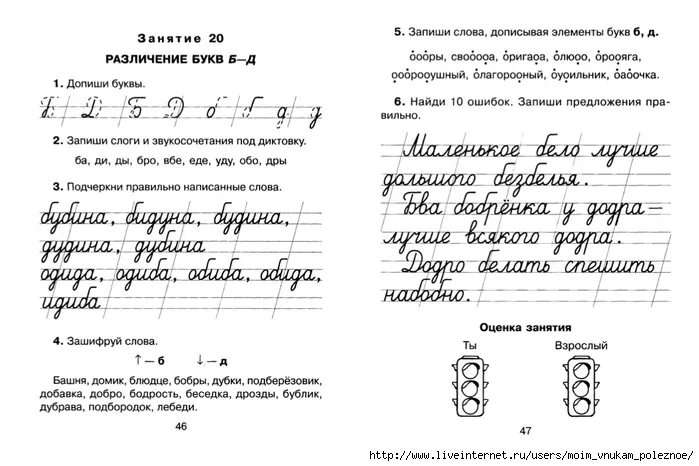 Занятие 20
РАЗЛИЧЕНИЕ БУКВ Б—Д
1. Допиши буквы.
Б Д Б Д б б д д
2. Запиши слоги и звукосочетания под диктовку.
ба, ди, ды, бро, вбе, еде, уду, обо, дры
3. Подчеркни правильно написанные слова.
бубина, бидуна, будина,
дудина, дубина
одида, одиба, обиба, обида,
идиба
4. Зашифруй слова.
↑ — б ↓ — д
Башня, домик, блюдце, бобры, дубки, подберёзовик,
добавка, добро, бодрость, беседка, дрозды, бублик,
дубрава, подбородок, лебеди.
46
5. Запиши слова, дописывая элементы букв б, д.
оооры, свооооа, оригаоа, олюоо, ороояга,
ооорооушный, олагорооный, оуоильник, оаоочка.
6. Найди 10 ошибок. Запиши предложения пра-
вильно.
Маленькое бело лучше
дольшого безбелья.
Бва бобрёнка у додра—
лучше всякого додра.
Додро белать спешить
набобно.
Оценка занятия
Ты Взрослый
47
http://www.liveinternet.ru/users/moim_vnukam_poleznoe/